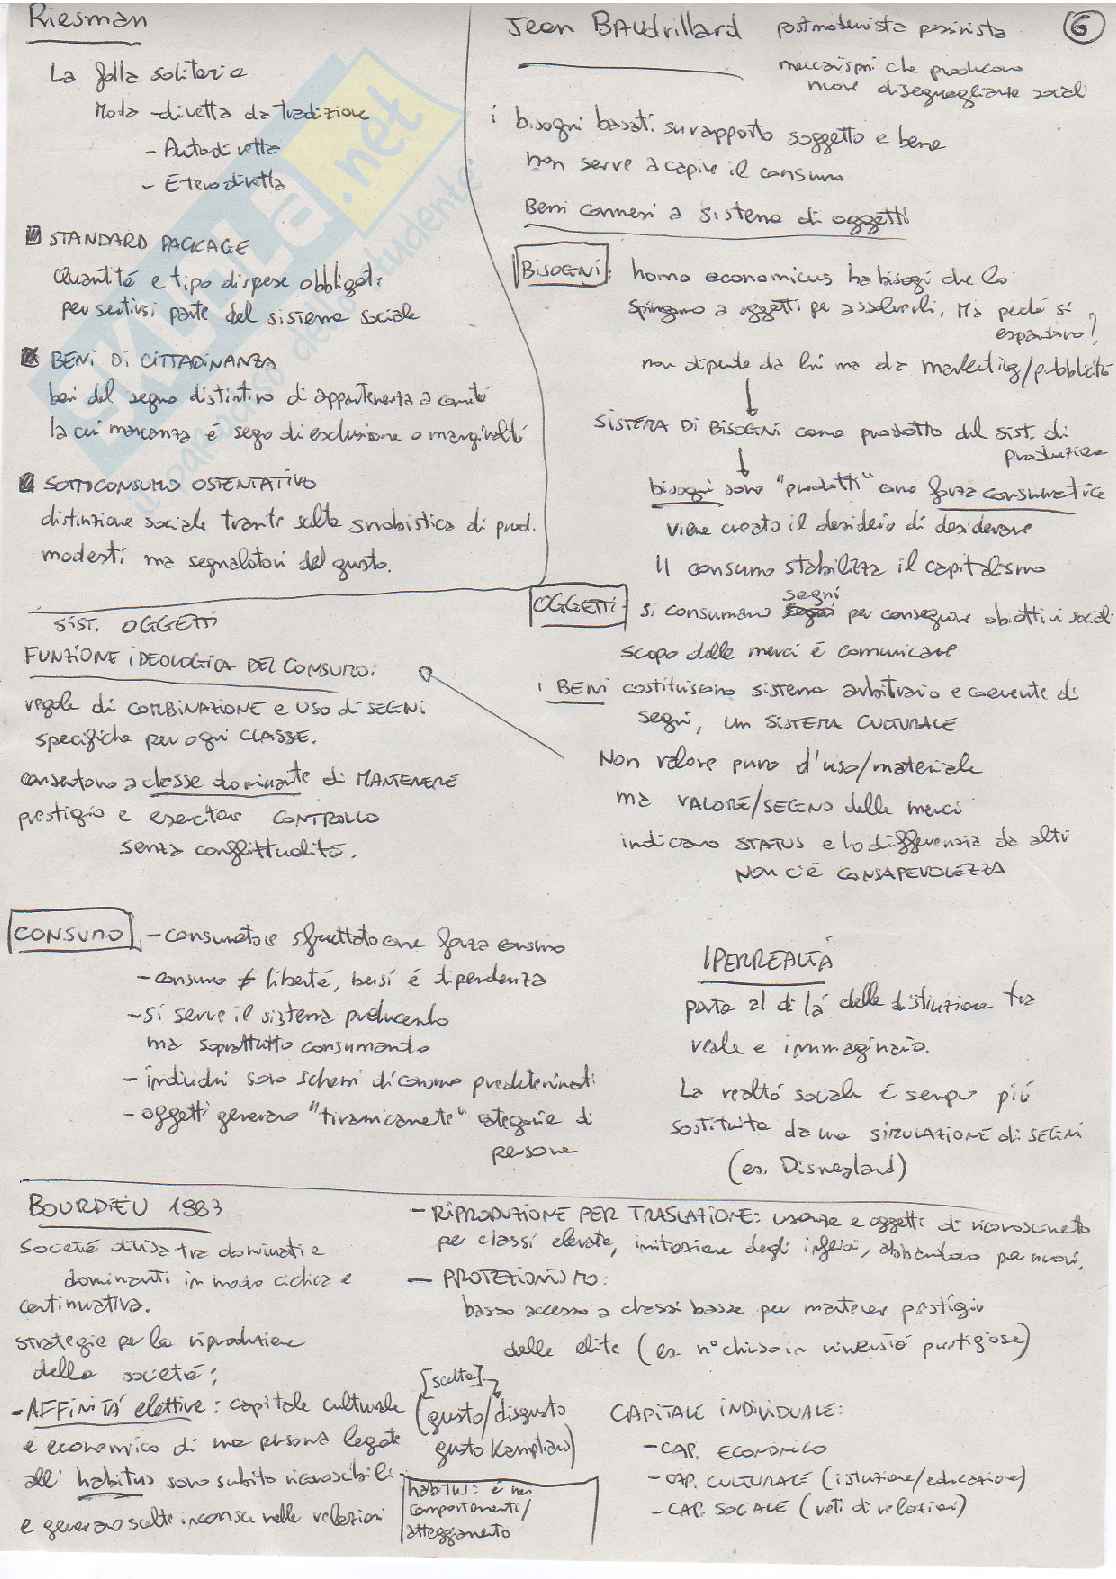 6
Riesman
La folla solitaria
Moda - diretta da tradizione
- Autodiretta
- Eterodiretta
STANDARD PACKAGE
Quantità e tipo di spese obbligati
per sentirsi parte del sistema sociale
BENI DI CITTADINANZA
beni del segno distintivo di appartenenza a comità
la cui mancanza é segno di esclusione o marginalità
SOTTOCONSUMO OSTENTATIVO
distinzione sociale tramite scelta snobistica di prod.
modesti ma segnalatori del gusto.
Jean BAudrillard postmodernista pessimista
meccanismi che producono
nuove diseguaglianze sociali
i bisogni basati su rapporto soggetto e bene
non serve a capire il consumo
Beni connessi a sistema di oggetti
BISOGNI: homo economicus ha bisogni che lo
spingono a oggetti per assolverli, Ma perché si
espandono?
non dipende da lui ma da marketing/pubblicità
SISTEMA DI BISOGNI come prodotto del sist. di
produzione
bisogni sono "prodotti" come forza consumatrice
viene creato il desiderio di desiderare
Il consumo stabilizza il capitalismo
OGGETTI: si consumano segni per conseguire obiettivi sociali
scopo delle merci é comunicare
i BENI costituiscono sistema arbitrario e coerente di
segni, un SISTEMA CULTURALE
Non valore puro d'uso/materiale
ma VALORE/SEGNO delle merci
indicano STATUS e lo differenzia da altri
NON C'É CONSAPEVOLEZZA
SIST. OGGETTI
FUNZIONE IDEOLOGICA DEL CONSUMO:
regole di COMBINAZIONE e USO di SEGNI
specifiche per ogni CLASSE.
consentono a classe dominante di MANTENERE
prestigio e esercitare CONTROLLO
senza conflittualità.
CONSUMO - consumatore sfruttato come forza consumo
- consumo ≠ libertà, bensí é dipendenza
- si serve il sistema producendo
ma soprattutto consumando
- individui sono schemi di consumo predeterminati
- oggetti generano "tirannicamente" categorie di
persone
IPERREALTÀ
porta al di lá della distinzione tra
reale e immaginario.
La realtá sociale é sempre piú
sostituita da una SIMULAZIONE di SEGNI
(es. Disneyland)
BOURDIEU 1983
Società divisa tra dominati e
dominanti in modo ciclica e
continuativa.
strategie per la riproduzione
della società:
- AFFINITÁ elettive: capitale culturale
e economico di una persona legate
all' habitus sono subito riconoscibili
e generano scelte inconsce nelle relazioni
[scelta]
(gusto/disgusto
gusto Kantiano)
habitus: é un
comportamento/
atteggiamento
- RIPRODUZIONE PER TRASLAZIONE: usanze e oggetti di riconoscimento
per classi elevate, imitazione degli inferiori, abbandono per nuovi.
- PROTEZIONISMO:
basso accesso a classi basse per mantener prestigio
delle elite (es. n° chiuso in università prestigiose)
CAPITALE INDIVIDUALE:
- CAP. ECONOMICO
- CAP. CULTURALE (istruzione/educazione)
- CAP. SOCIALE (reti di relazioni)